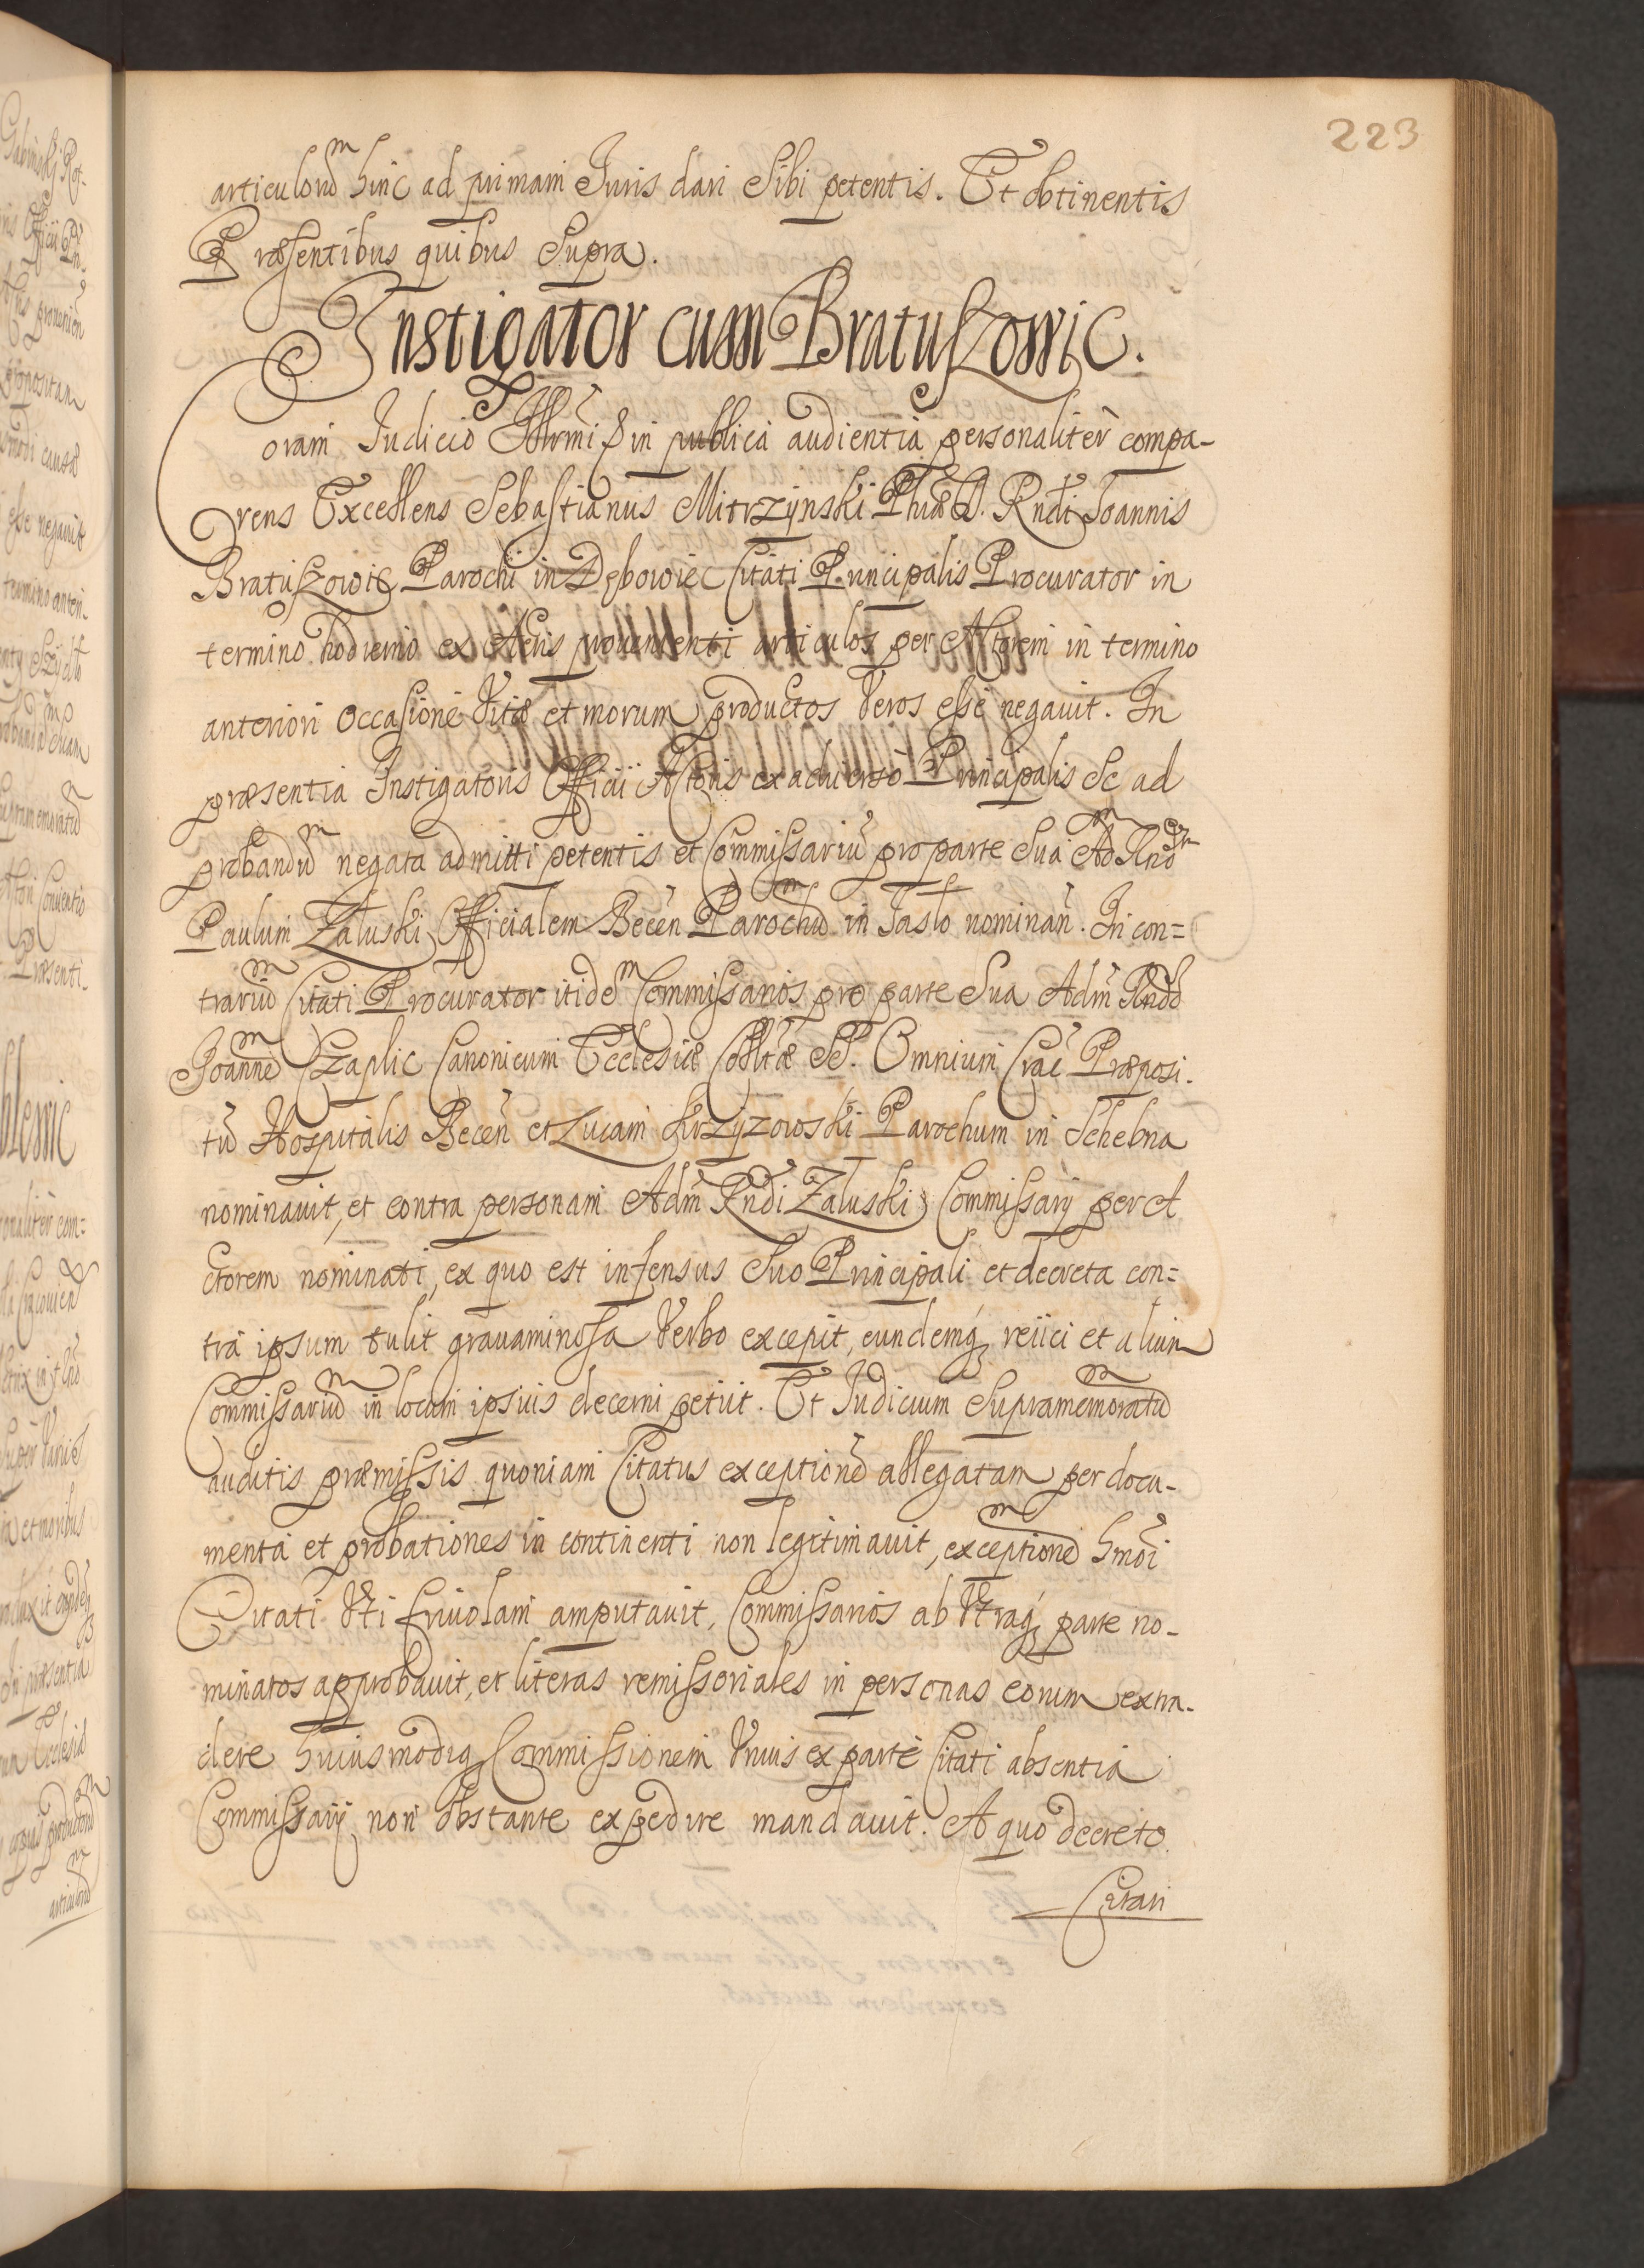 223
articulorum hinc ad primam Iuris dari Sibi petentis. Et obtinentis
Præsentibus quibus Supra.
Instigator cum Bratuszowic.
Coram Iudicio in publica audientia personaliter compa-
rens Excellens Sebastianus Mitrzynski Phiæ D. Rndi Joannis
Bratuszowic Parochi in Dębowiec Citati Principalis Procurator in
termino hodierno ex Actis provenienti articulos per Actorem in termino
anteriori occasione Vitæ et morum productos Veros esse negavit. In
præsentia Instigatoris Officii Actoris ex adverso Principalis Se ad
probandum negata admitti petentis et Commissarium pro parte Sua Ad. Rndum
Paulum Zaluski Officialem Becen Parochum in Jaslo nominan. In con=
trarium Citati Procurator itidem Commissarios pro parte Sua Adm Rndos
Joannem Czaplic Canonicum Ecclesiæ Colltæ SS. Omnium Crac Præposi-
tum Hospitalis Becen et Lucam Krzyzowski Parochum in Schebna
nominavit, et contra personam Adm Rndi Zaluski Commissarij per A
ctorem nominati, ex quo est infensus Suo Principali et decreta con=
tra ipsum tulit gravaminosa Verbo excepit, eundemq reiici et alium
Commissarium in locum ipsius decerni petiit. Et Iudicium Supramemoratum
auditis præmissis quoniam Citatus exceptionem allegatam per docu-
menta et probationes in continenti non legitimavit, exceptionem hmoi
Citati Uti frivolam amputavit, Commissarios ab Utraq parte no-
minatos approbavit, et literas remissoriales in personas eorum extra-
dere huiusmodiq Commissionem Unius ex parte Citati absentia
Commissarij non obstante expedire mandavit. A quo decreto
Citati